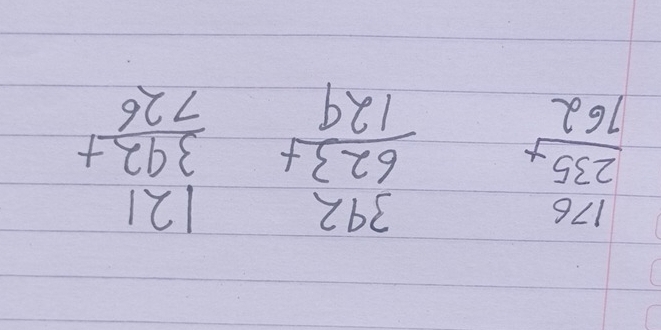 176 392 121
235+ 623+ 392+
762 129 726